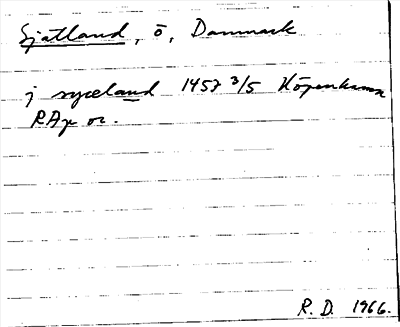 Själland, ö, Danmark
j syæland 1457 3/5 Köpenhamn
RAp or.
R. D. 1966.